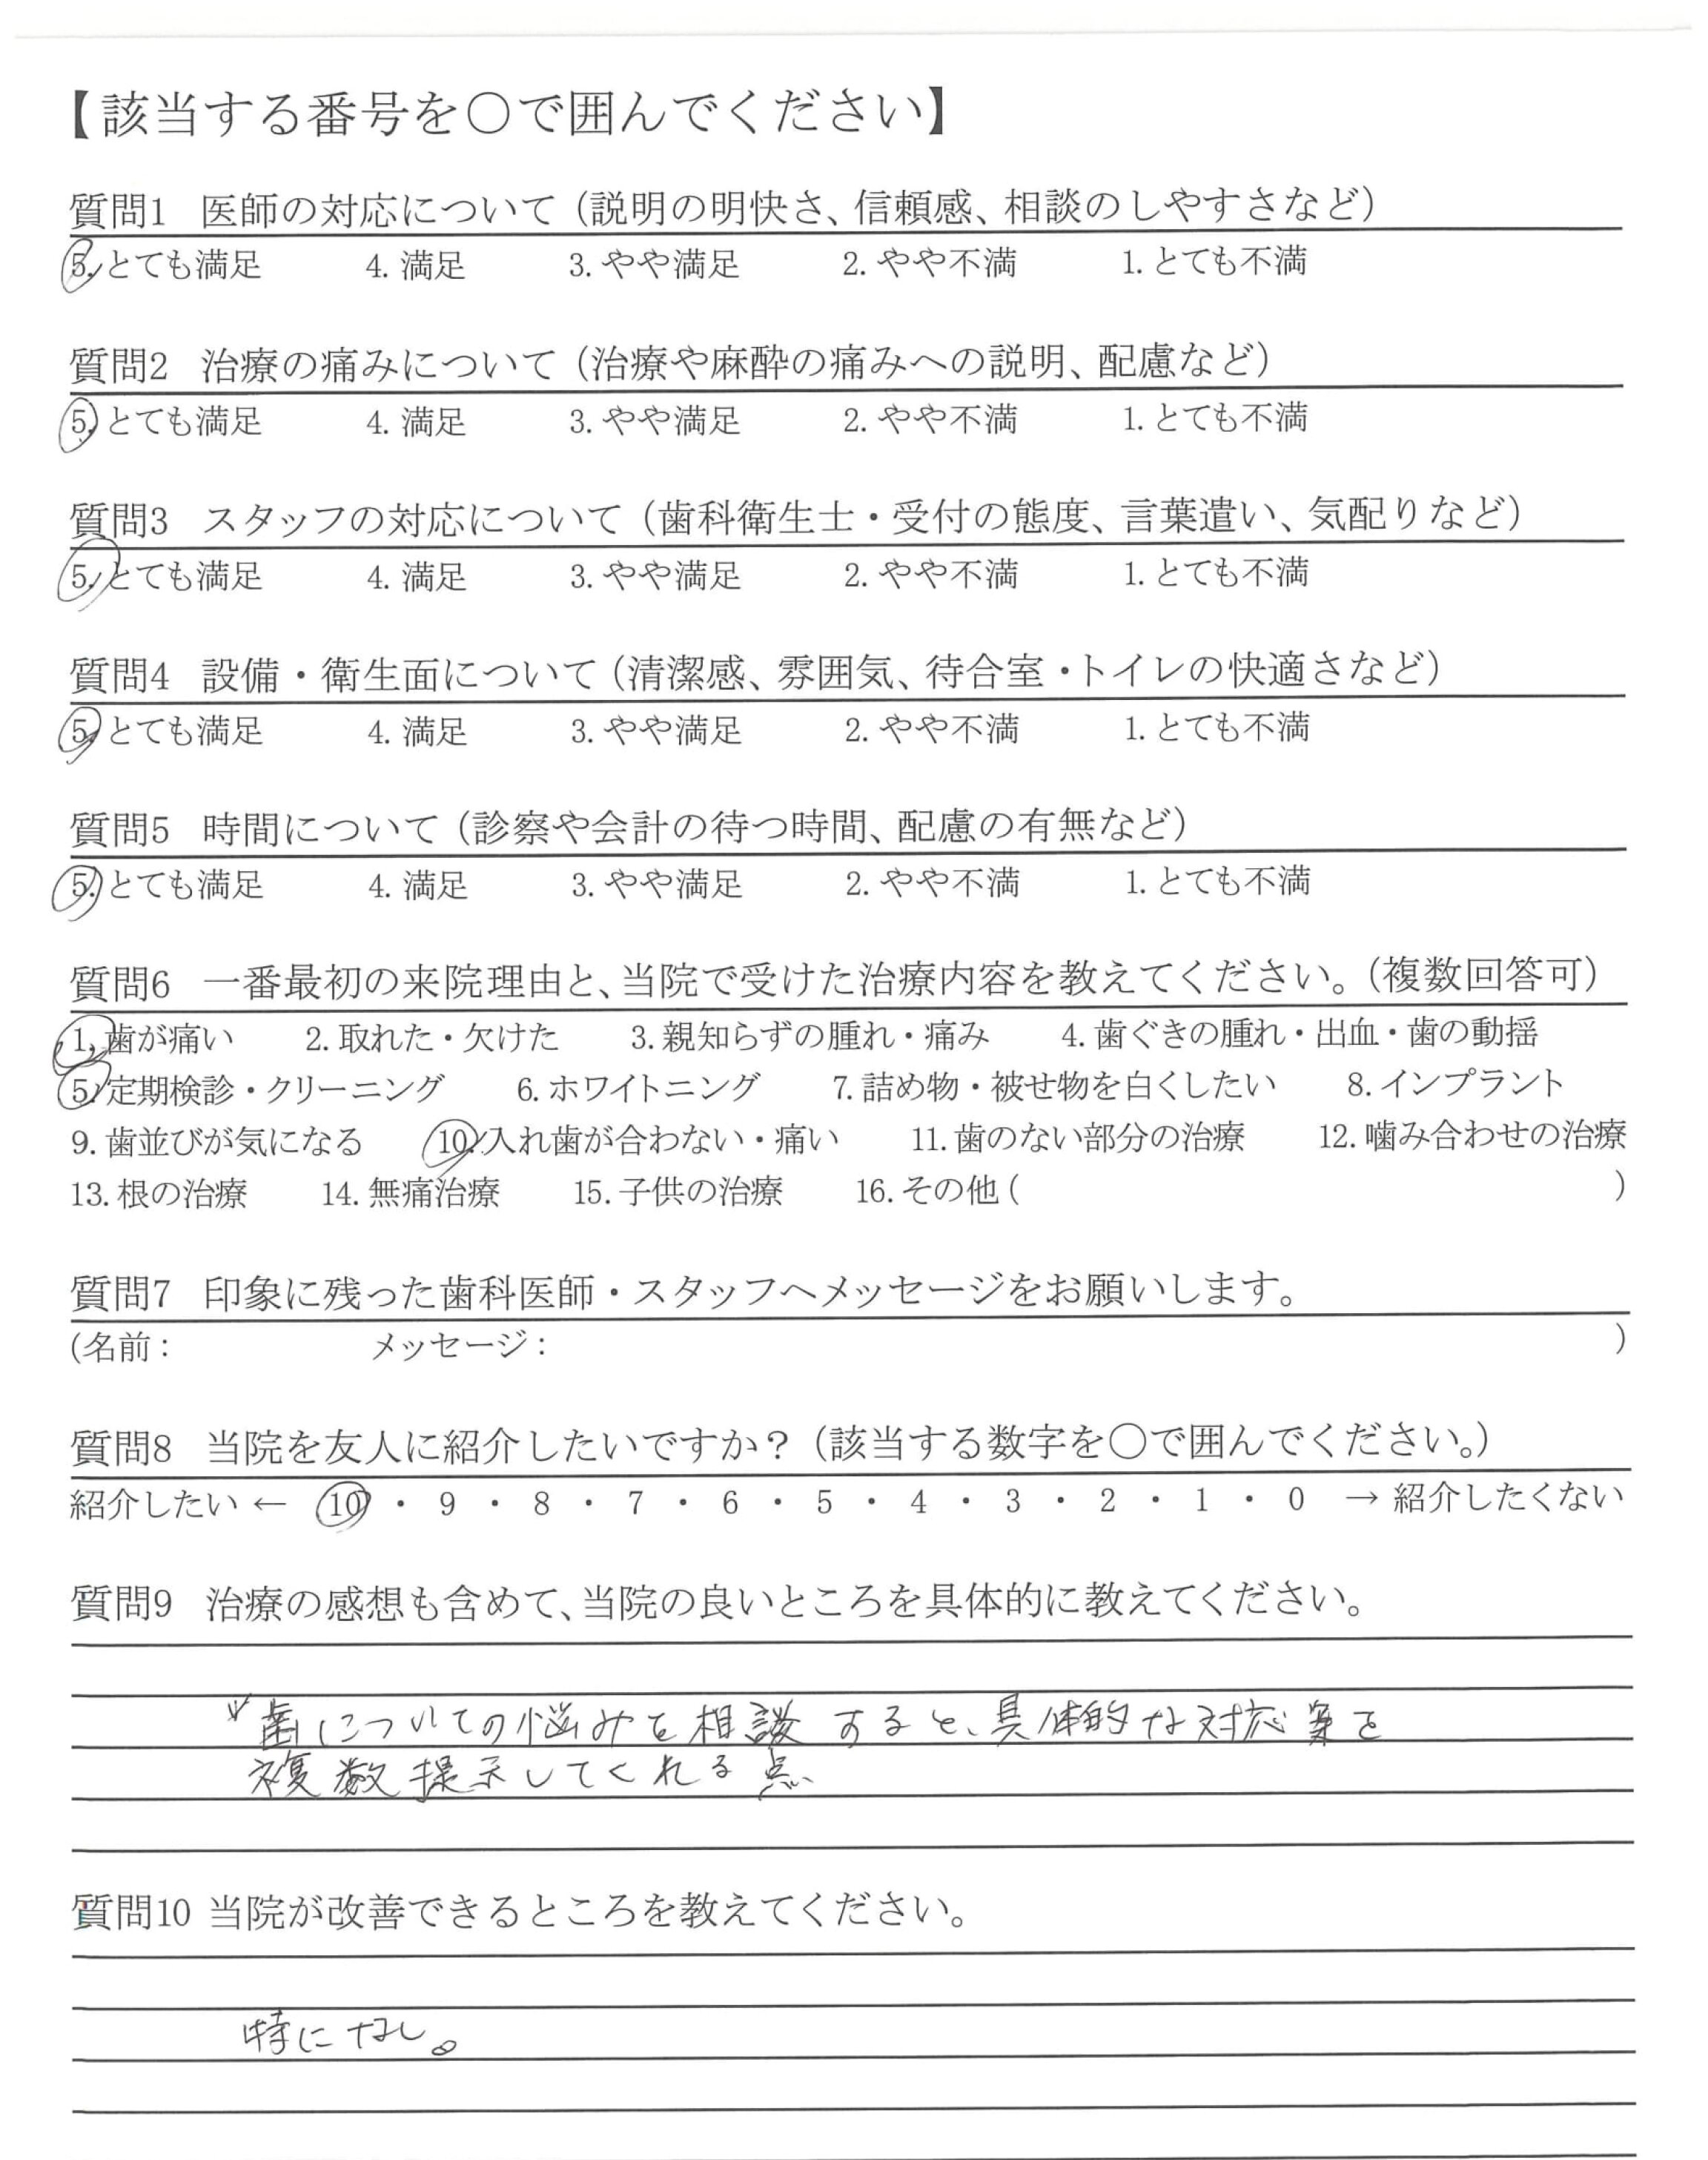 【該当する番号を○で囲んでください】
質問1 医師の対応について（説明の明快さ、信頼感、相談のしやすさなど）
5. とても満足 4. 満足 3. やや満足 2. やや不満 1. とても不満
質問2 治療の痛みについて（治療や麻酔の痛みへの説明、配慮など）
5. とても満足 4. 満足 3. やや満足 2. やや不満 1. とても不満
質問3 スタッフの対応について（歯科衛生士・受付の態度、言葉遣い、気配りなど）
5. とても満足 4. 満足 3. やや満足 2. やや不満 1. とても不満
質問4 設備・衛生面について（清潔感、雰囲気、待合室・トイレの快適さなど）
5. とても満足 4. 満足 3. やや満足 2. やや不満 1. とても不満
質問5 時間について（診察や会計の待つ時間、配慮の有無など）
5. とても満足 4. 満足 3. やや満足 2. やや不満 1. とても不満
質問6 一番最初の来院理由と、当院で受けた治療内容を教えてください。（複数回答可）
1. 歯が痛い 2. 取れた・欠けた 3. 親知らずの腫れ・痛み 4. 歯ぐきの腫れ・出血・歯の動揺
5. 定期検診・クリーニング 6. ホワイトニング 7. 詰め物・被せ物を白くしたい 8. インプラント
9. 歯並びが気になる 10. 入れ歯が合わない・痛い 11. 歯のない部分の治療 12. 噛み合わせの治療
13. 根の治療 14. 無痛治療 15. 子供の治療 16. その他（ ）
質問7 印象に残った歯科医師・スタッフへメッセージをお願いします。
（名前： メッセージ： ）
質問8 当院を友人に紹介したいですか？（該当する数字を○で囲んでください。）
紹介したい ← 10 ・ 9 ・ 8 ・ 7 ・ 6 ・ 5 ・ 4 ・ 3 ・ 2 ・ 1 ・ 0 → 紹介したくない
質問9 治療の感想も含めて、当院の良いところを具体的に教えてください。
歯についての悩みを相談すると、具体的な対応案を
複数提示してくれる点
質問10 当院が改善できるところを教えてください。
特になし。